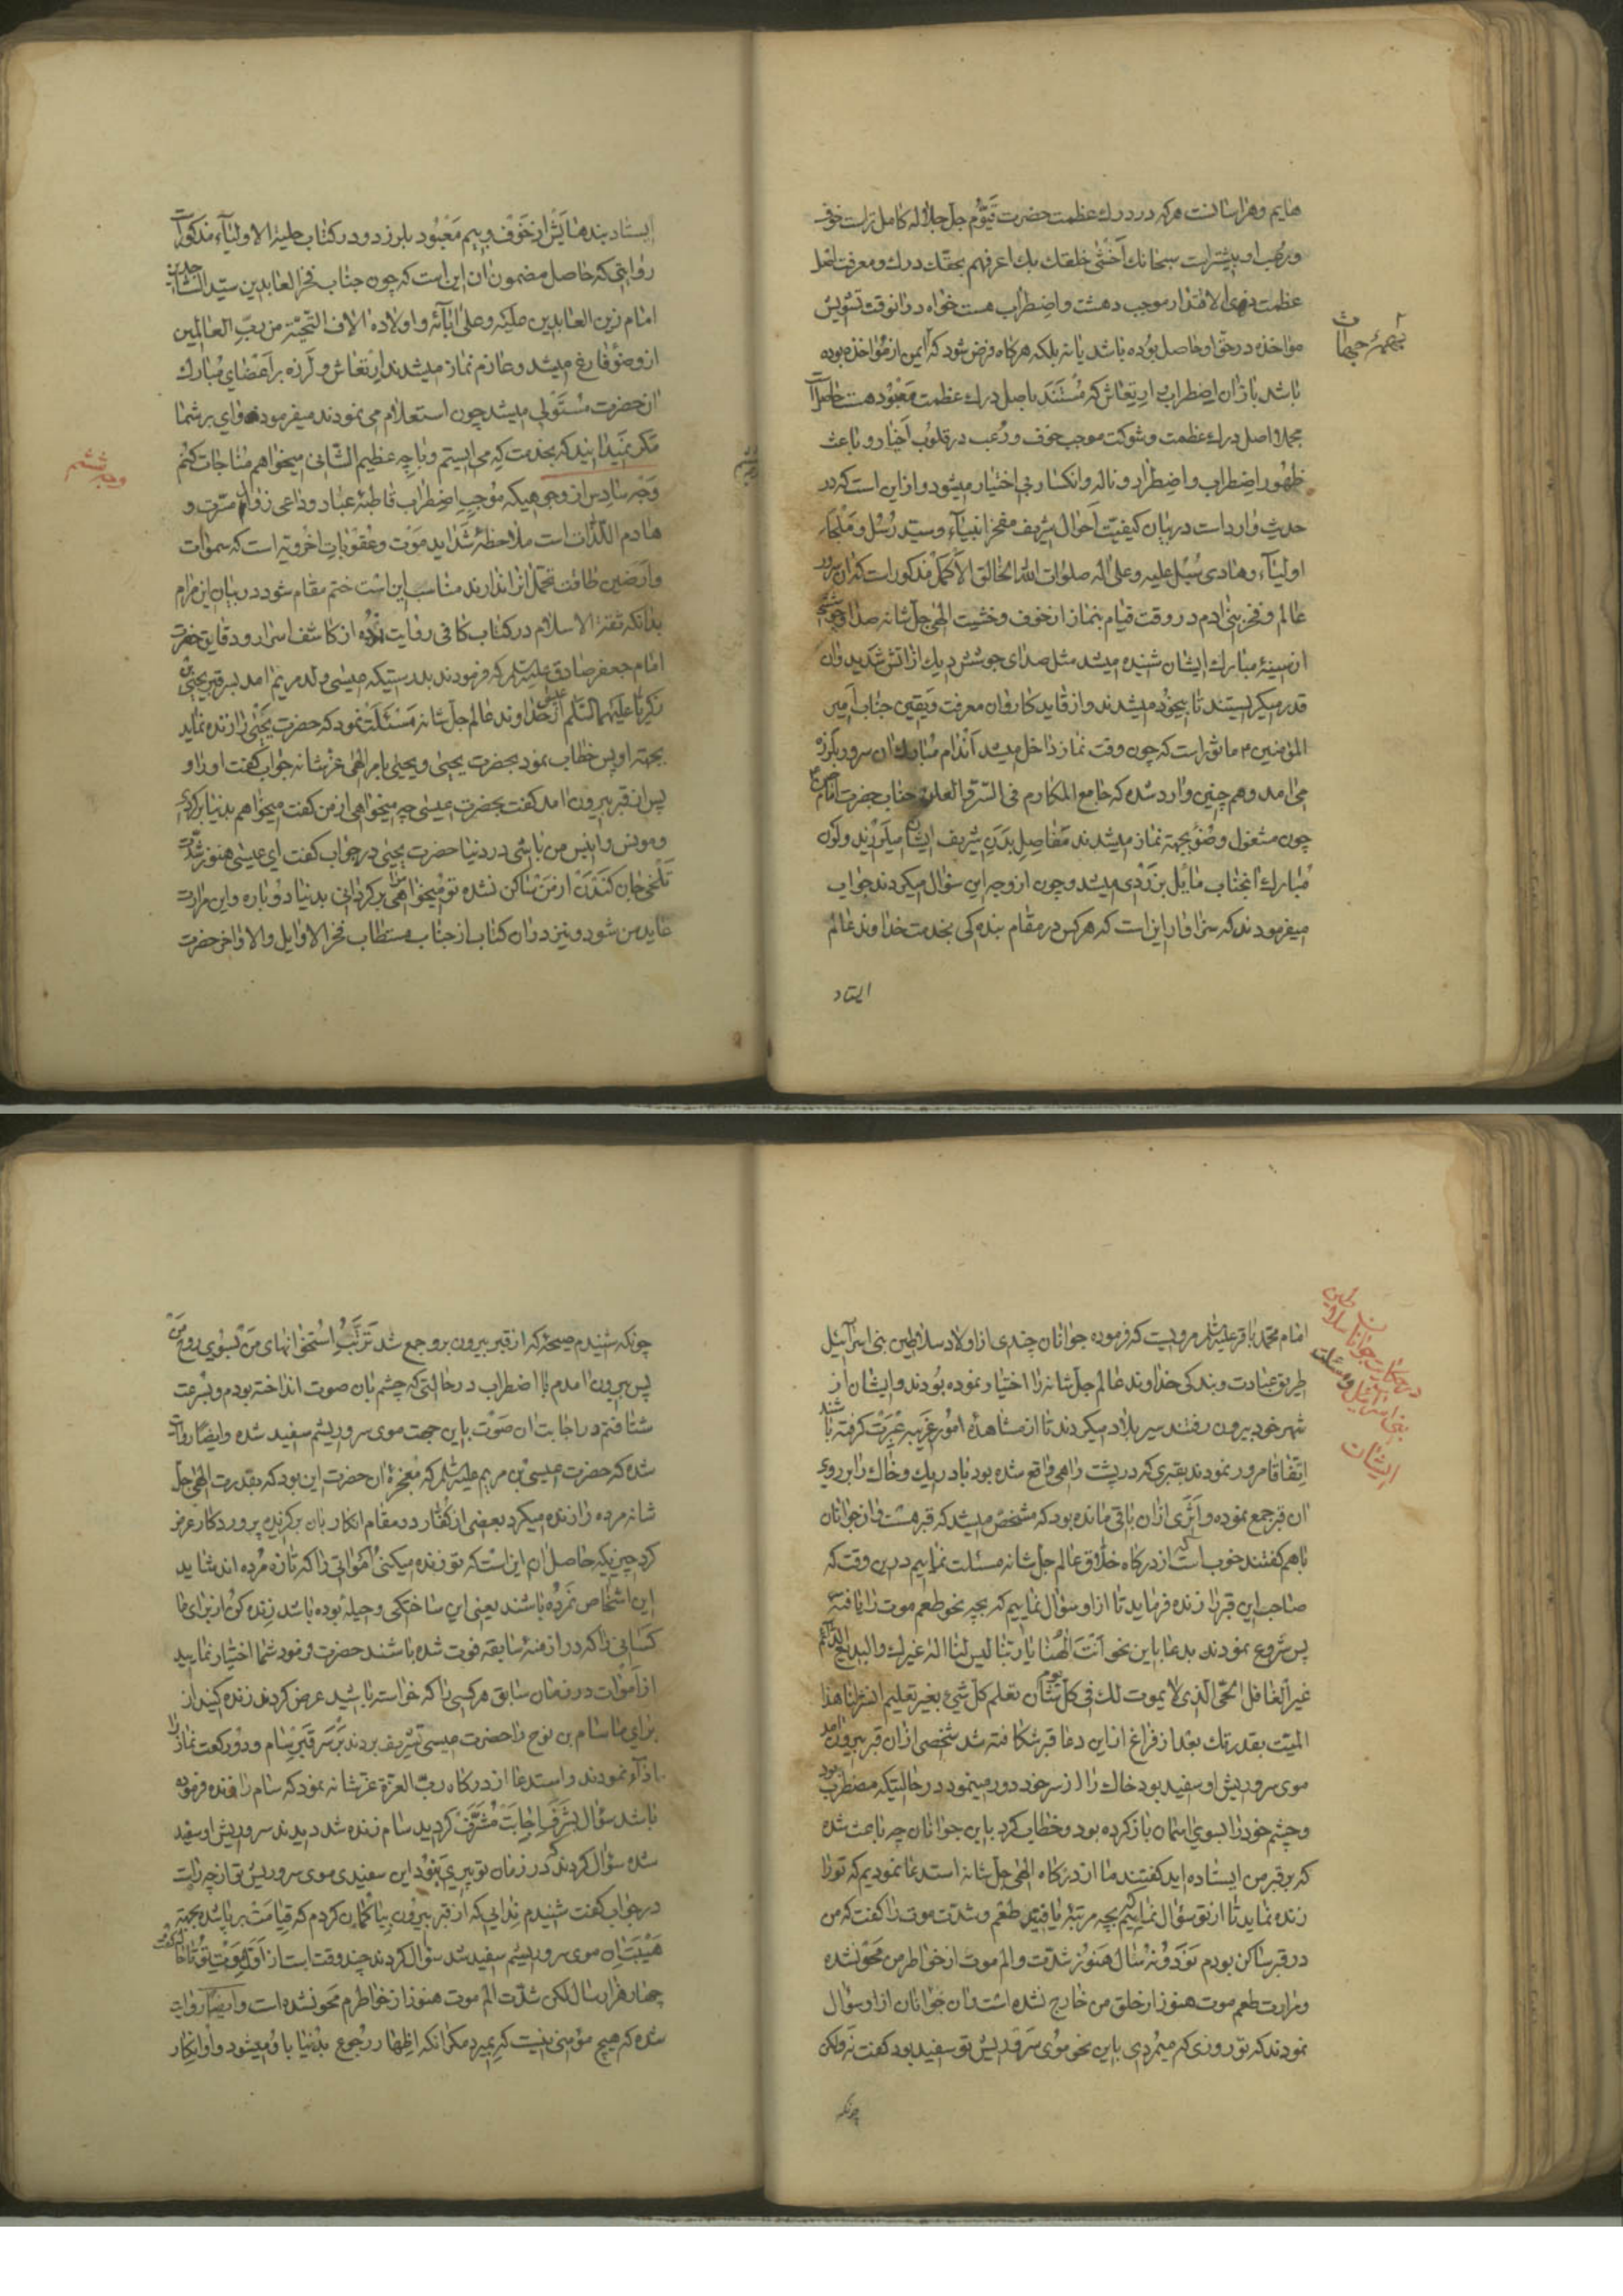 هایم و هراسانست هرکه در درك عظمت حضرت قیّوم جلّ جلاله کامل تر است خوف
و رعب او بیشتر است سبحانك اخشی خلقك بك اعرفهم بحقك درك و معرفت اصل
عظمت ذوی الاقتدار موجب دهشت و اضطراب هست خواه در آنوقت تشویش
مؤاخذه در حق او حاصل بوده باشد یا نه بلکه هرگاه فرض شود که ایمن از مؤاخذه بوده
باشد باز آن اضطراب و ارتعاش که مستند باصل درك عظمت معبود هست حاصل است
مجملا اصل درك عظمت و شوکت موجب خوف و رعب در قلوب اخیار و باعث
ظهور اضطراب و اضطرار و ناله و انکسار بی اختیار میشود و از این است که در
حدیث وارد است در بیان کیفیت احوال شریف مفخر انبیآء و سید رسل و ملجاء
اولیآء و هادی سبل علیه و علی اله صلوات الله الخالق الاکمل مذکور است که آن سرور
عالم و فخر بنی ادم در وقت قیام بنماز از خوف و خشیت الهی جل شانه صدا و جوششی
از سینۀ مبارك ایشان شنیده میشد مثل صدای جوشش دیك از آتش شدید و آن
قدر میکریستند تا بیخود میشدند و از قاید کاروان معرفت و یقین جناب امیر
المؤمنین ع ماثور است که چون وقت نماز داخل میشد اندام مبارك ان سرور بلرزه
می امد و هم چنین وارد شده که جامع المکارم فی السّر و العلن جناب حضرت امام حسن ع
چون مشغول وضو بجهته نماز میشدند مفاصل بدن شریف ایشان میلرزید و لون
مبارك انجناب مایل بزردی میشد و چون از وجه این سؤال میکردند جواب
میفرمودند که سزاوار این است که هر کس در مقام بنده کی بخدمت خداوند عالم
ایستاد
ایستاد بندهایش از خوف و بیم معبود بلرزد و در کتاب حلیة الاولیآء مذکور است
روایتی که حاصل مضمون ان این است که چون جناب فخر العابدین سید الساجدین
امام زین العابدین علیه و علی ابآئه و اولاده الاف التحیّة من رب العالمین
از وضو فارغ میشد و عازم نماز میشدند ارتعاش و لرزه بر اعضای مبارك
ان حضرت مستولی میشد چون استعلام می نمودند میفرمود وای بر شما
مکر نمیدانید که بخدمت که می ایستم و با چه عظیم الشانی میخواهم مناجات کنم
وجه ششم
وجه سادس از وجوهیکه موجب اضطراب قاطبۀ عباد و داعی زوال مسرّت و
هادم اللّذات است ملاحظۀ شداید موت و عقوبات اخرویه است که سموات
و ارضین طاقت تحمل انرا ندارند مناسب این است ختم مقام شود در بیان این مرام
بدانکه ثقة الاسلام در کتاب کافی روایت نموده از کاشف اسرار و دقایق حضرت
امام جعفر صادق علیه السلام که فرمودند بدرستیکه عیسی ولد مریم امد بسر قبر یحیی بن
زکریا علیهما السّلم از خداوند عالم جل شانه مسئلت نمود که حضرت یحیی را زنده نماید
بجهته او پس خطاب نمود بحضرت یحیی و یحیی بامر الهی عز شانه جواب گفت او را و
پس از قبر بیرون امد کفت بحضرت عیسی چه میخواهی از من کفت میخواهم بدنیا برکردی
و مونس و انیس من باشی در دنیا حضرت یحیی در جواب کفت ای عیسی هنوز شدّت
تلخی جان کندن از من ساکن نشده تو میخواهی مرا برکردانی بدنیا دوباره و این مرارت
عاید من شود و نیز در ان کتاب از جناب مستطاب فخر الاوایل و الاواخر حضرت
در حکایت جوانان سلاطین
بنی اسرائیل و مسئلت
ایشان
امام محمد باقر علیه السلام مرویست که فرموده جوانان چندی از اولاد سلاطین بنی اسرآئیل
طریق عبادت و بندکی خداوند عالم جل شانه را اختیار نموده بودند و ایشان از
شهر خود بیرون رفتند سیر بلاد میکردند تا از مشاهدۀ امور غریبه عبرت کرفته باشند
اتفاقا مرور نمودند بقبری که در پشت راهی واقع شده بود باد ریك و خاك را بر روی
ان قبر جمع نموده و اثری از ان باقی مانده بود که مشخص میشد که قبر هست از جوانان
باهم کفتند خوب است که از درکاه خلاّق عالم جل شانه مسئلت نماییم در این وقت که
صاحب این قبر را زنده فرماید تا از او سؤال نماییم که بچه نحو طعم موت را یافتۀ
پس شروع نمودند بدعا باین نحو انت الهنا یا ربنا لیس لنا اله غیرك و البدیع الدآئم
غیر الغافل الحی الذی لا یموت لك فی کل یوم شان تعلم کل شیئ بغیر تعلیم انشر لنا هذا
المیّت بقدرتك بعد از فراغ از این دعا قبر شکافته شد شخصی از ان قبر بیرون امد
موی سر و ریش او سفید بود خاك را از سر خود دور مینمود در حالتیکه مضطرب بود
و چشم خود را بسوی اسمان باز کرده بود و خطاب کرد باین جوانان چه باعث شده
که بر قبر من ایستاده اید کفتند ما از درکاه الهی جل شانه استدعا نمودیم که تو را
زنده نماید تا از تو سؤال نماییم که بچه مرتبه یافتی طعم و شدّت موت را کفت که من
در قبر ساکن بودم نود و نه سال هنوز شدّت و الم موت از خواطر من محو نشده
و مرارت طعم موت هنوز از خلق من خارج نشده است ان جوانان از او سؤال
نمودند که تو روزی که میمردی باین نحو موی سر و ریش تو سفید بود کفت نه ولکن
چونکه
چونکه شنیدم صیحۀ که از قبر بیرون برو جمع شد تربت استخوانهای من بسوی روح من
پس بیرون امدم با اضطراب در حالتی که چشم بان صوت انداخته بودم و بسرعت
شتافتم در اجابت ان صوت باین جهت موی سر و ریشم سفید شده و ایضا روایت
شده که حضرت عیسی بن مریم علیه السلام که معجزۀ ان حضرت این بود که بقدرت الهی جل
شانه مرده را زنده میکرد بعضی از کفّار در مقام انکار بان برکزیده پروردکار عرض
کرد چیزیکه حاصل ان این است که تو زنده میکنی امواتی را که تازه مرده اند شاید
این اشخاص نمرده باشند یعنی این ساختکی و حیلۀ بوده باشد زنده کن از برای ما
کسانی را که در ازمنۀ سابقه فوت شده باشند حضرت فرمود شما اختیار نمایید
از اموات در زمان سابق هر کسی را که خواسته باشید عرض کردند زنده کنید از
برای ما سام بن نوح را حضرت عیسی تشریف بردند بر سر قبر سام و دو رکعت نماز را
ادآء نمودند و استدعا از درکاه رب العزة عز شانه نمود که سام را زنده فرموده
باشد سؤال بشرف اجابت مشرّف کردید سام زنده شد دیدند سر و ریش او سفید
شده سؤال کردند که در زمان تو پیری نبود این سفیدی موی سر و ریش تو از چه راست
در جواب کفت شنیدم ندایی که از قبر بیرون بیا کمان کردم که قیامت بر پا شده بجهته
هیبت ان موی سر و ریشم سفید شد سؤال کردند چند وقت است از وقت موت تو تا حال کفت
چهار هزار سال لکن شدّت الم موت هنوز از خواطرم محو نشده است و ایضا روایت
شده که هیچ مؤمنی نیست که بمیرد مکر انکه اظهار رجوع بدنیا باو میشود و او انکار